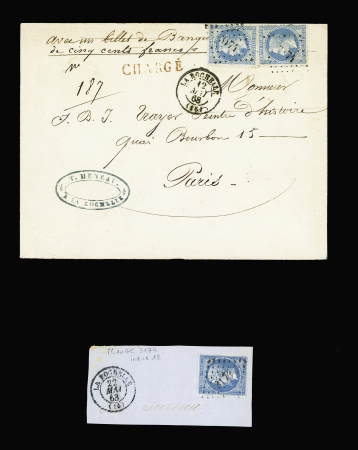 Avec un billet de Banque
de cinq cents francs
N°
187
CHARGÉ
LA ROCHELLE
12
MAI
68
(16)
Monsieur
F. B. J. Trayer Peintre d'histoire
quai Bourbon 15
Paris
T. MENEAU
A LA ROCHELLE
LA ROCHELLE
22
MAI
63